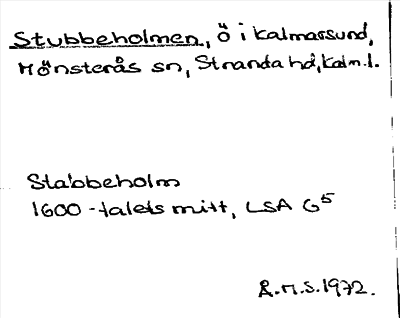 Stubbeholmen, Ö i Kalmarsund,
Mönsterås sn, Stranda hd, Kalm. l.
Stabbeholm
1600-talets mitt, LSA G5
Å.M.S. 1972.